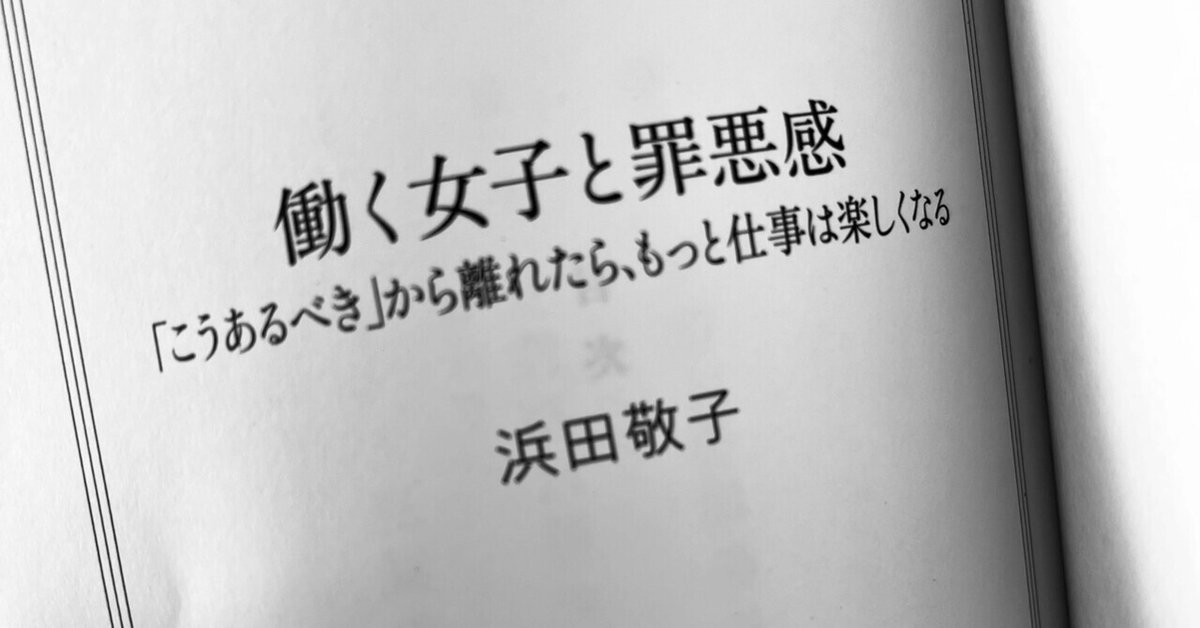 働く女子と罪悪感
「こうあるべき」から離れたら、もっと仕事は楽しくなる
浜田敬子